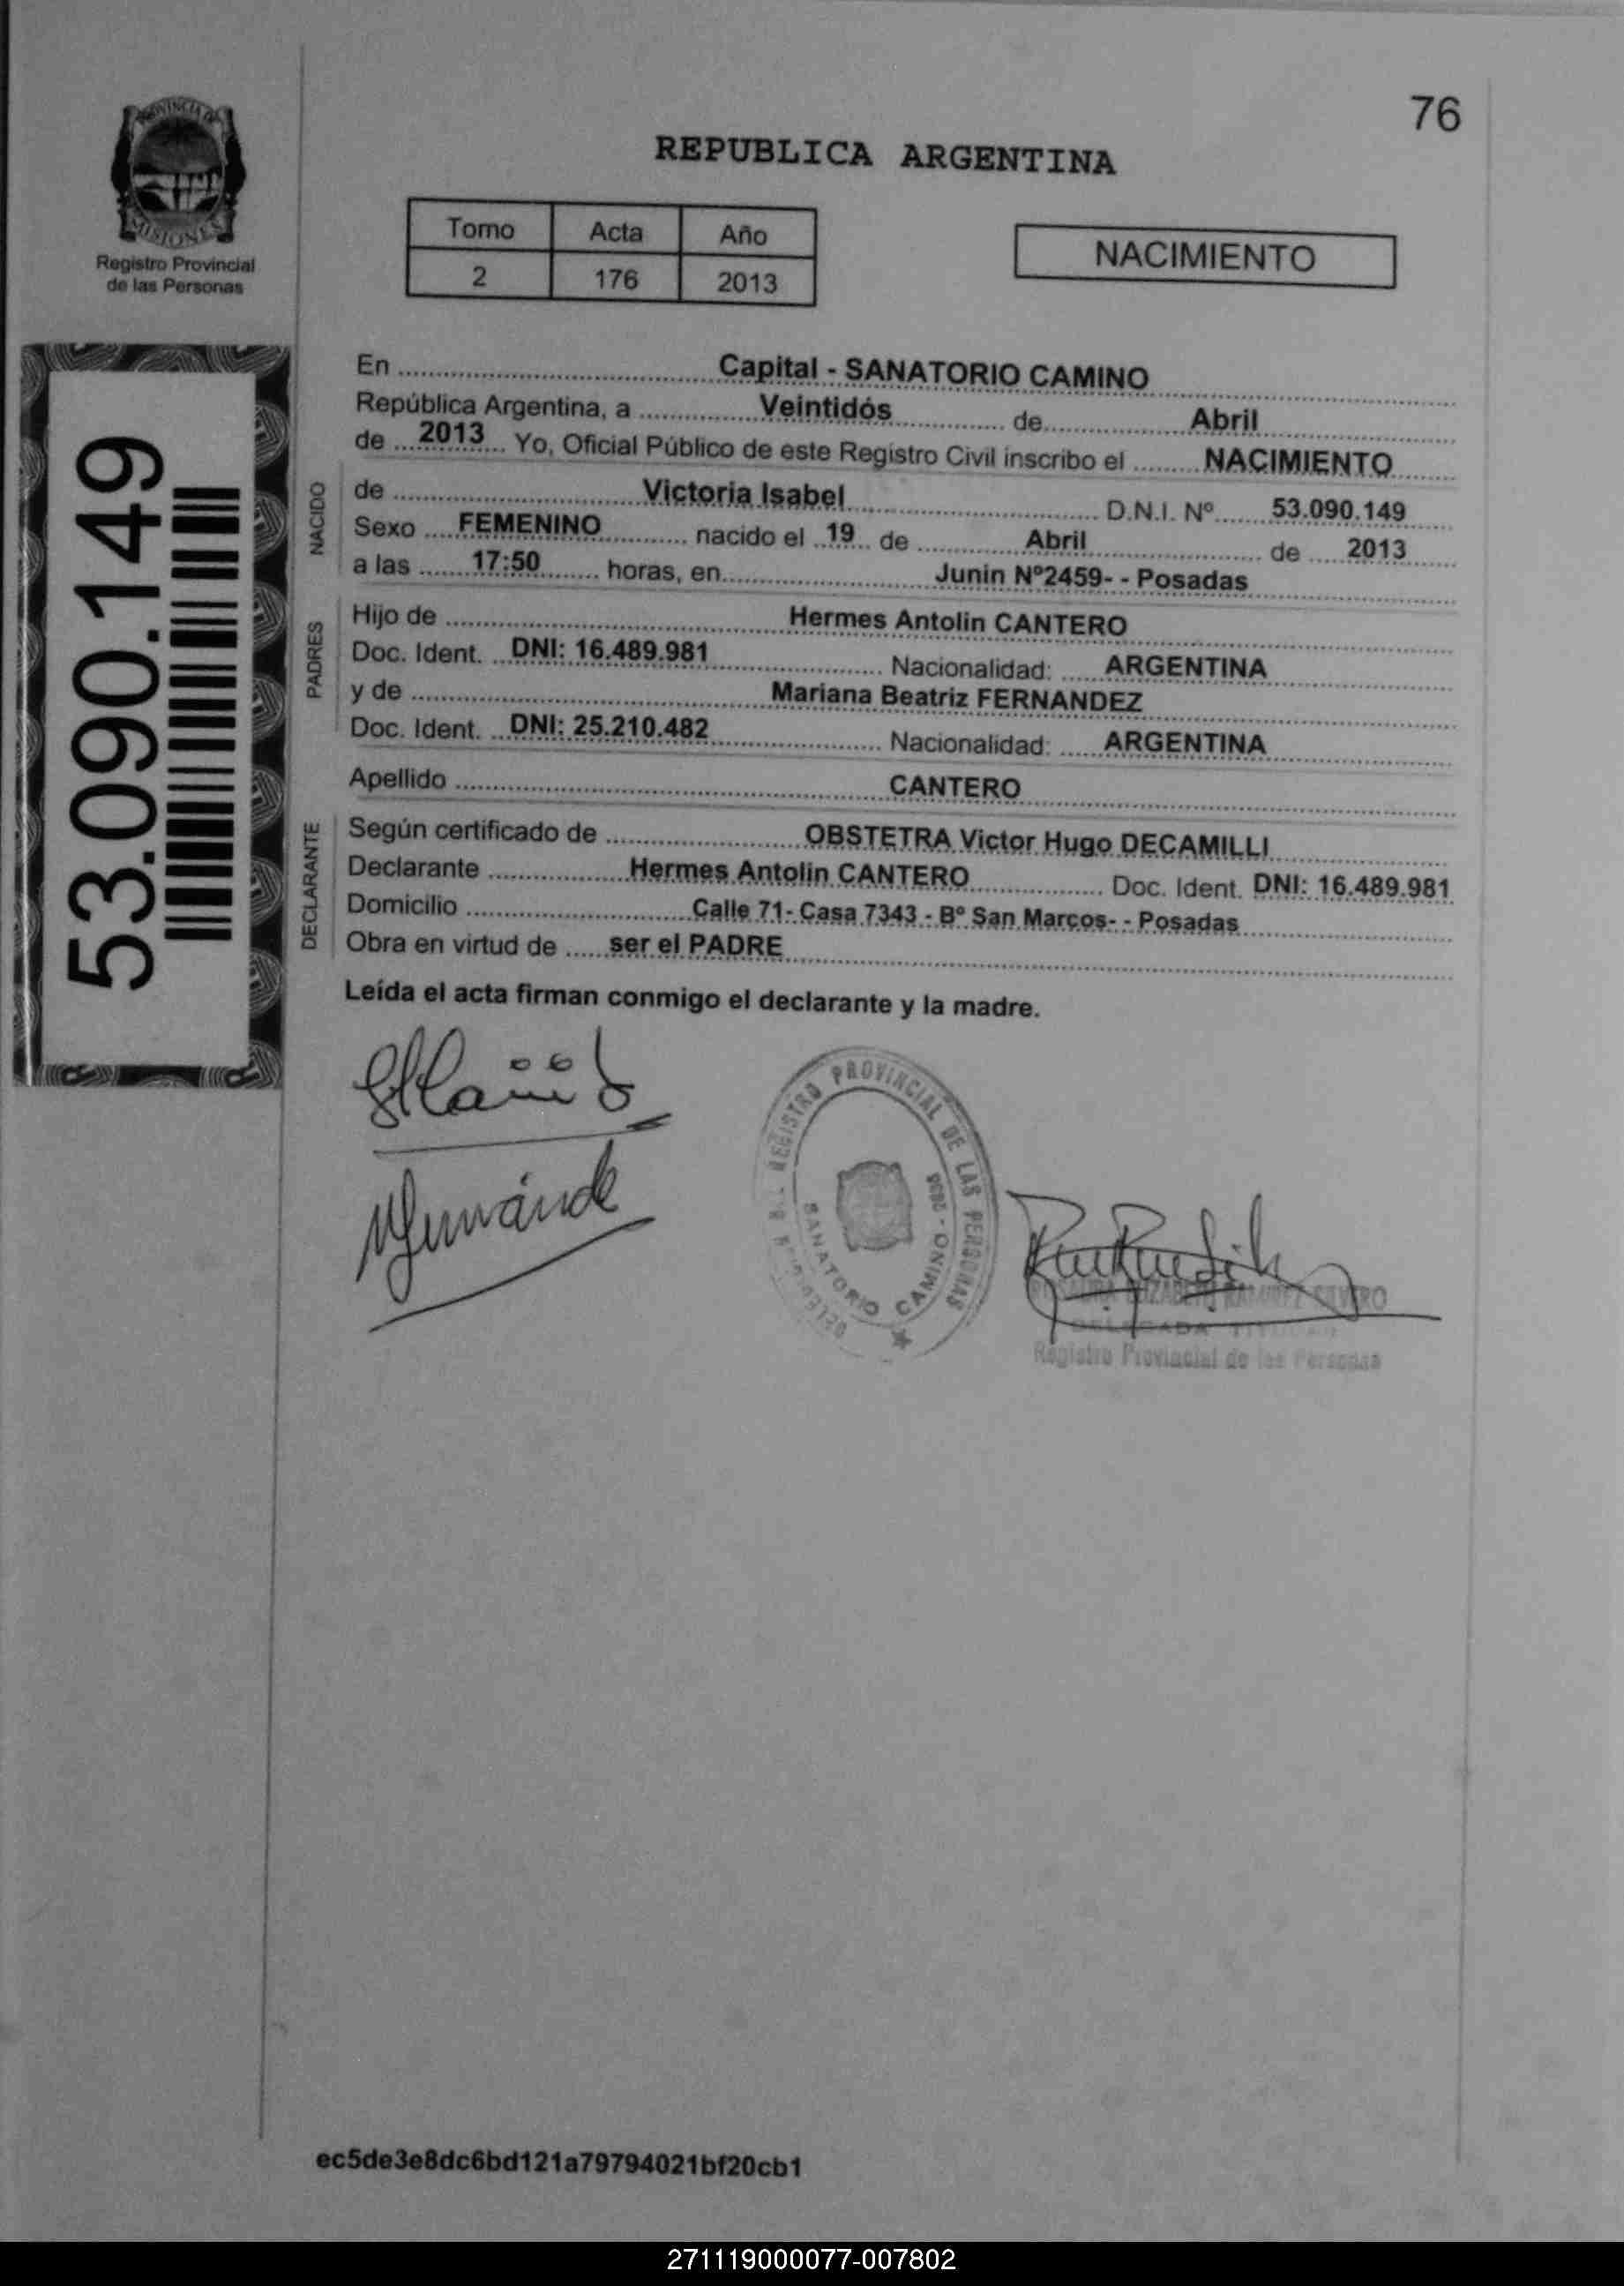 76
PROVINCIA DE
MISIONES
Registro Provincial
de las Personas
REPUBLICA ARGENTINA
Tomo Acta Año
2 176 2013
NACIMIENTO
53.090.149
En ........ Capital - SANATORIO CAMINO
República Argentina, a ........ Veintidós ........ de ........ Abril
de ... 2013 ... Yo, Oficial Público de este Registro Civil inscribo el ........ NACIMIENTO
NACIDO
de ........ Victoria Isabel ........ D.N.I. Nº ........ 53.090.149
Sexo .... FEMENINO ........ nacido el .. 19 .. de ........ Abril ........ de .... 2013
a las ...... 17:50 ...... horas, en ........ Junin Nº2459- - Posadas
PADRES
Hijo de ........ Hermes Antolin CANTERO
Doc. Ident. ... DNI: 16.489.981 ........ Nacionalidad: ...... ARGENTINA
y de ........ Mariana Beatriz FERNANDEZ
Doc. Ident. ... DNI: 25.210.482 ........ Nacionalidad: ...... ARGENTINA
Apellido ........ CANTERO
DECLARANTE
Según certificado de ........ OBSTETRA Victor Hugo DECAMILLI
Declarante ........ Hermes Antolin CANTERO ........ Doc. Ident. DNI: 16.489.981
Domicilio ........ Calle 71- Casa 7343 - Bº San Marcos- - Posadas
Obra en virtud de ...... ser el PADRE
Leída el acta firman conmigo el declarante y la madre.
REGISTRO PROVINCIAL DE LAS PERSONAS
SANATORIO CAMINO - 2636
ELIZABETH RAMIREZ SILVERO
DELEGADA TITULAR
Registro Provincial de las Personas
ec5de3e8dc6bd121a79794021bf20cb1
271119000077-007802